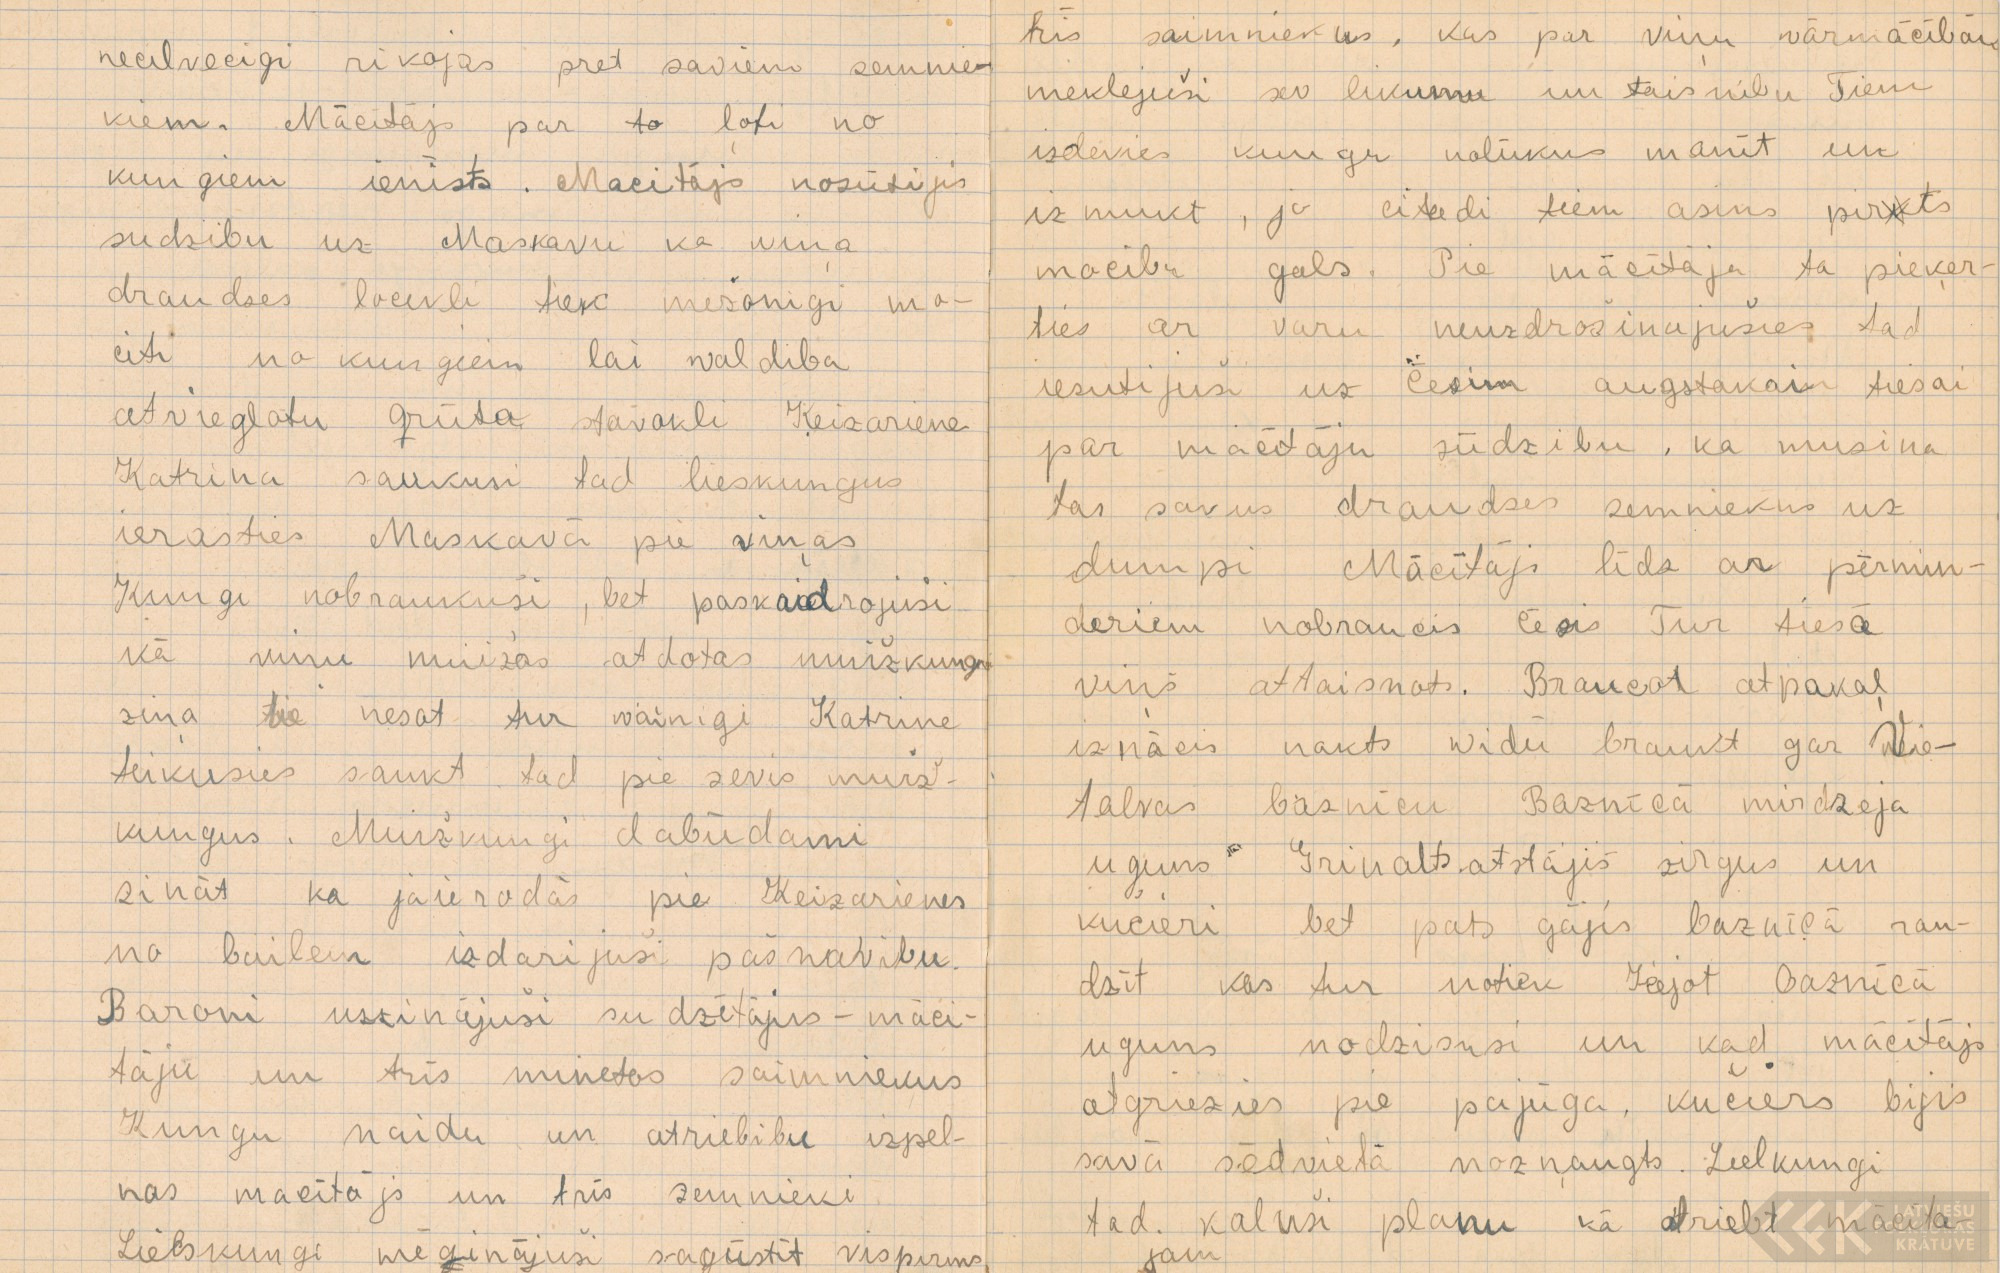 necilvecigi rikojas pret saviem semnie-
kiem. Mācītājs par to ļoti no
kungiem ienīsts. Macitājs nosūtijis
sudzibu uz Maskavu ka viņa
draudses locekli tiek mežonigi mo-
citi no kungiem lai waldiba
atvieglotu grūto stāvokli Ķeizariene
Katrina saukusi tad lieskungus
ierasties Maskavā pie viņas
Kungi nobraukuši, bet paskaidrojuši
kā viņu muižas atdotas muižkungu
ziņa tie nesot tur wainigi Katrine
teikusies saukt tad pie sevis muiž-
kungus. Muižkungi dabūdami
zināt ka jāierodās pie Ķeizarienes
no bailem izdarijuši pašnavibu.
Baroni uzzinājuši sudzētājus - māci-
tāju un trīs minetos saimniekus
Kungu naidu un atriebibu izpel-
nas macītājs un trīs zemnieki
Lielskungi mēģinājuši sagūstīt vispirms
trīs saimniekus, kas par viņu vārmācibām
meklejuši sev likumu un taisnibu Tiem
izdevies kungu nolūkus manīt un
izmukt, jo citadi tiem asins pirts
mocibu gals. Pie mācītāja ta pieķer-
ties ar varu neuzdrošinajušies tad
iesutijuši uz Čēsim augstakai tiesai
par mācītāju sūdzibu, ka musina
tas savus draudzes zemniekus uz
dumpi Mācītājs līdz ar pērmin-
deriem nobraucis Čēsis Tur tiesā
viņš attaisnots. Braucot atpakaļ
iznācis nakts widū braukt gar Vie-
talvas baznīcu Baznīcā mirdzeja
uguns Grinalts atstājis zirgus un
kučieri bet pats gājis baznīcā rau-
dzīt kas tur notiek Ieejot baznīcā
uguns nodzisusi un kad mācītājs
atgriezies pie pajūga, kučiers bijis
savā sēdvietā nozņaugts. Lielkungi
tad kaluši planu kā atriebt mācīta-
jam
LATVIEŠU
KRĀTUVE